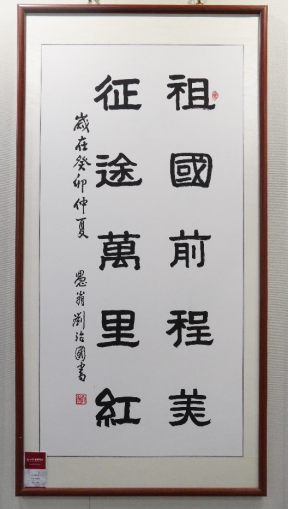 祖國前程美
征途萬里紅
歲在癸卯仲夏 愚翁劉治國書